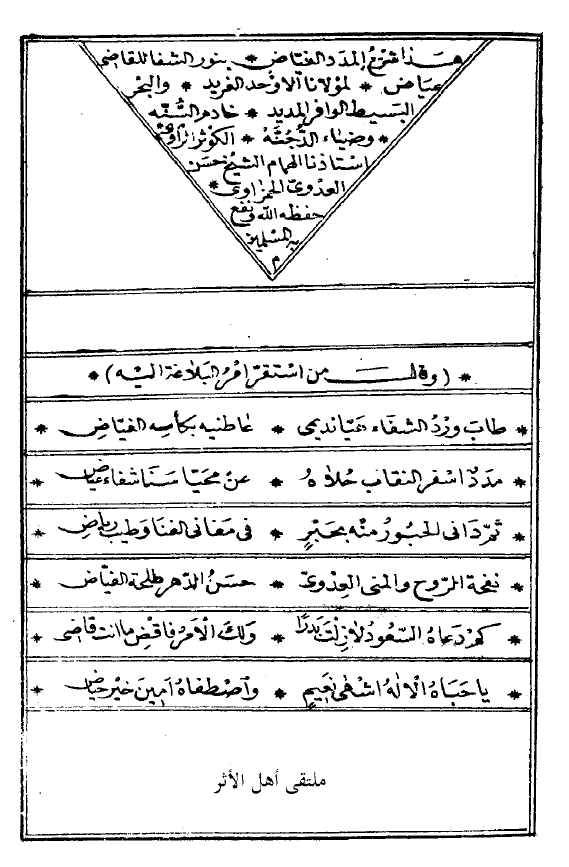 هذا شرح المدد الفياض * بنور الشفا للقاضى
عياض * لمولانا الاوحد الفريد * والبحر
البسيط الوافر المديد * خادم السنه
* وضياء الدجنه * الكوثر الراوى
استاذنا الهمام الشيخ حسن
العدوى الحمزاوى *
حفظه الله ونفع
به المسلمين
م
* (وقال من استقر امر البلاغة اليه) *
* طاب ورد الشفاء هيا نديمى * عاطنيه بكأسه الفياض *
* مدد اسفر النقاب حلاه * عن محيا سنا شفاء عياض *
* ثم دانى الحبور منه بحبر * فى مغانى الغنا وطيب رياض *
* نفحة الروح والمنى العدوى * حسن الدهر طلحة الفياض *
* كم دعاه السعود لازلت بدرا * ولك الامر فاقض ما انت قاضى *
* يا حباه الاله اشهى نعيم * واصطفاه امين خير حياض *
ملتقى أهل الأثر